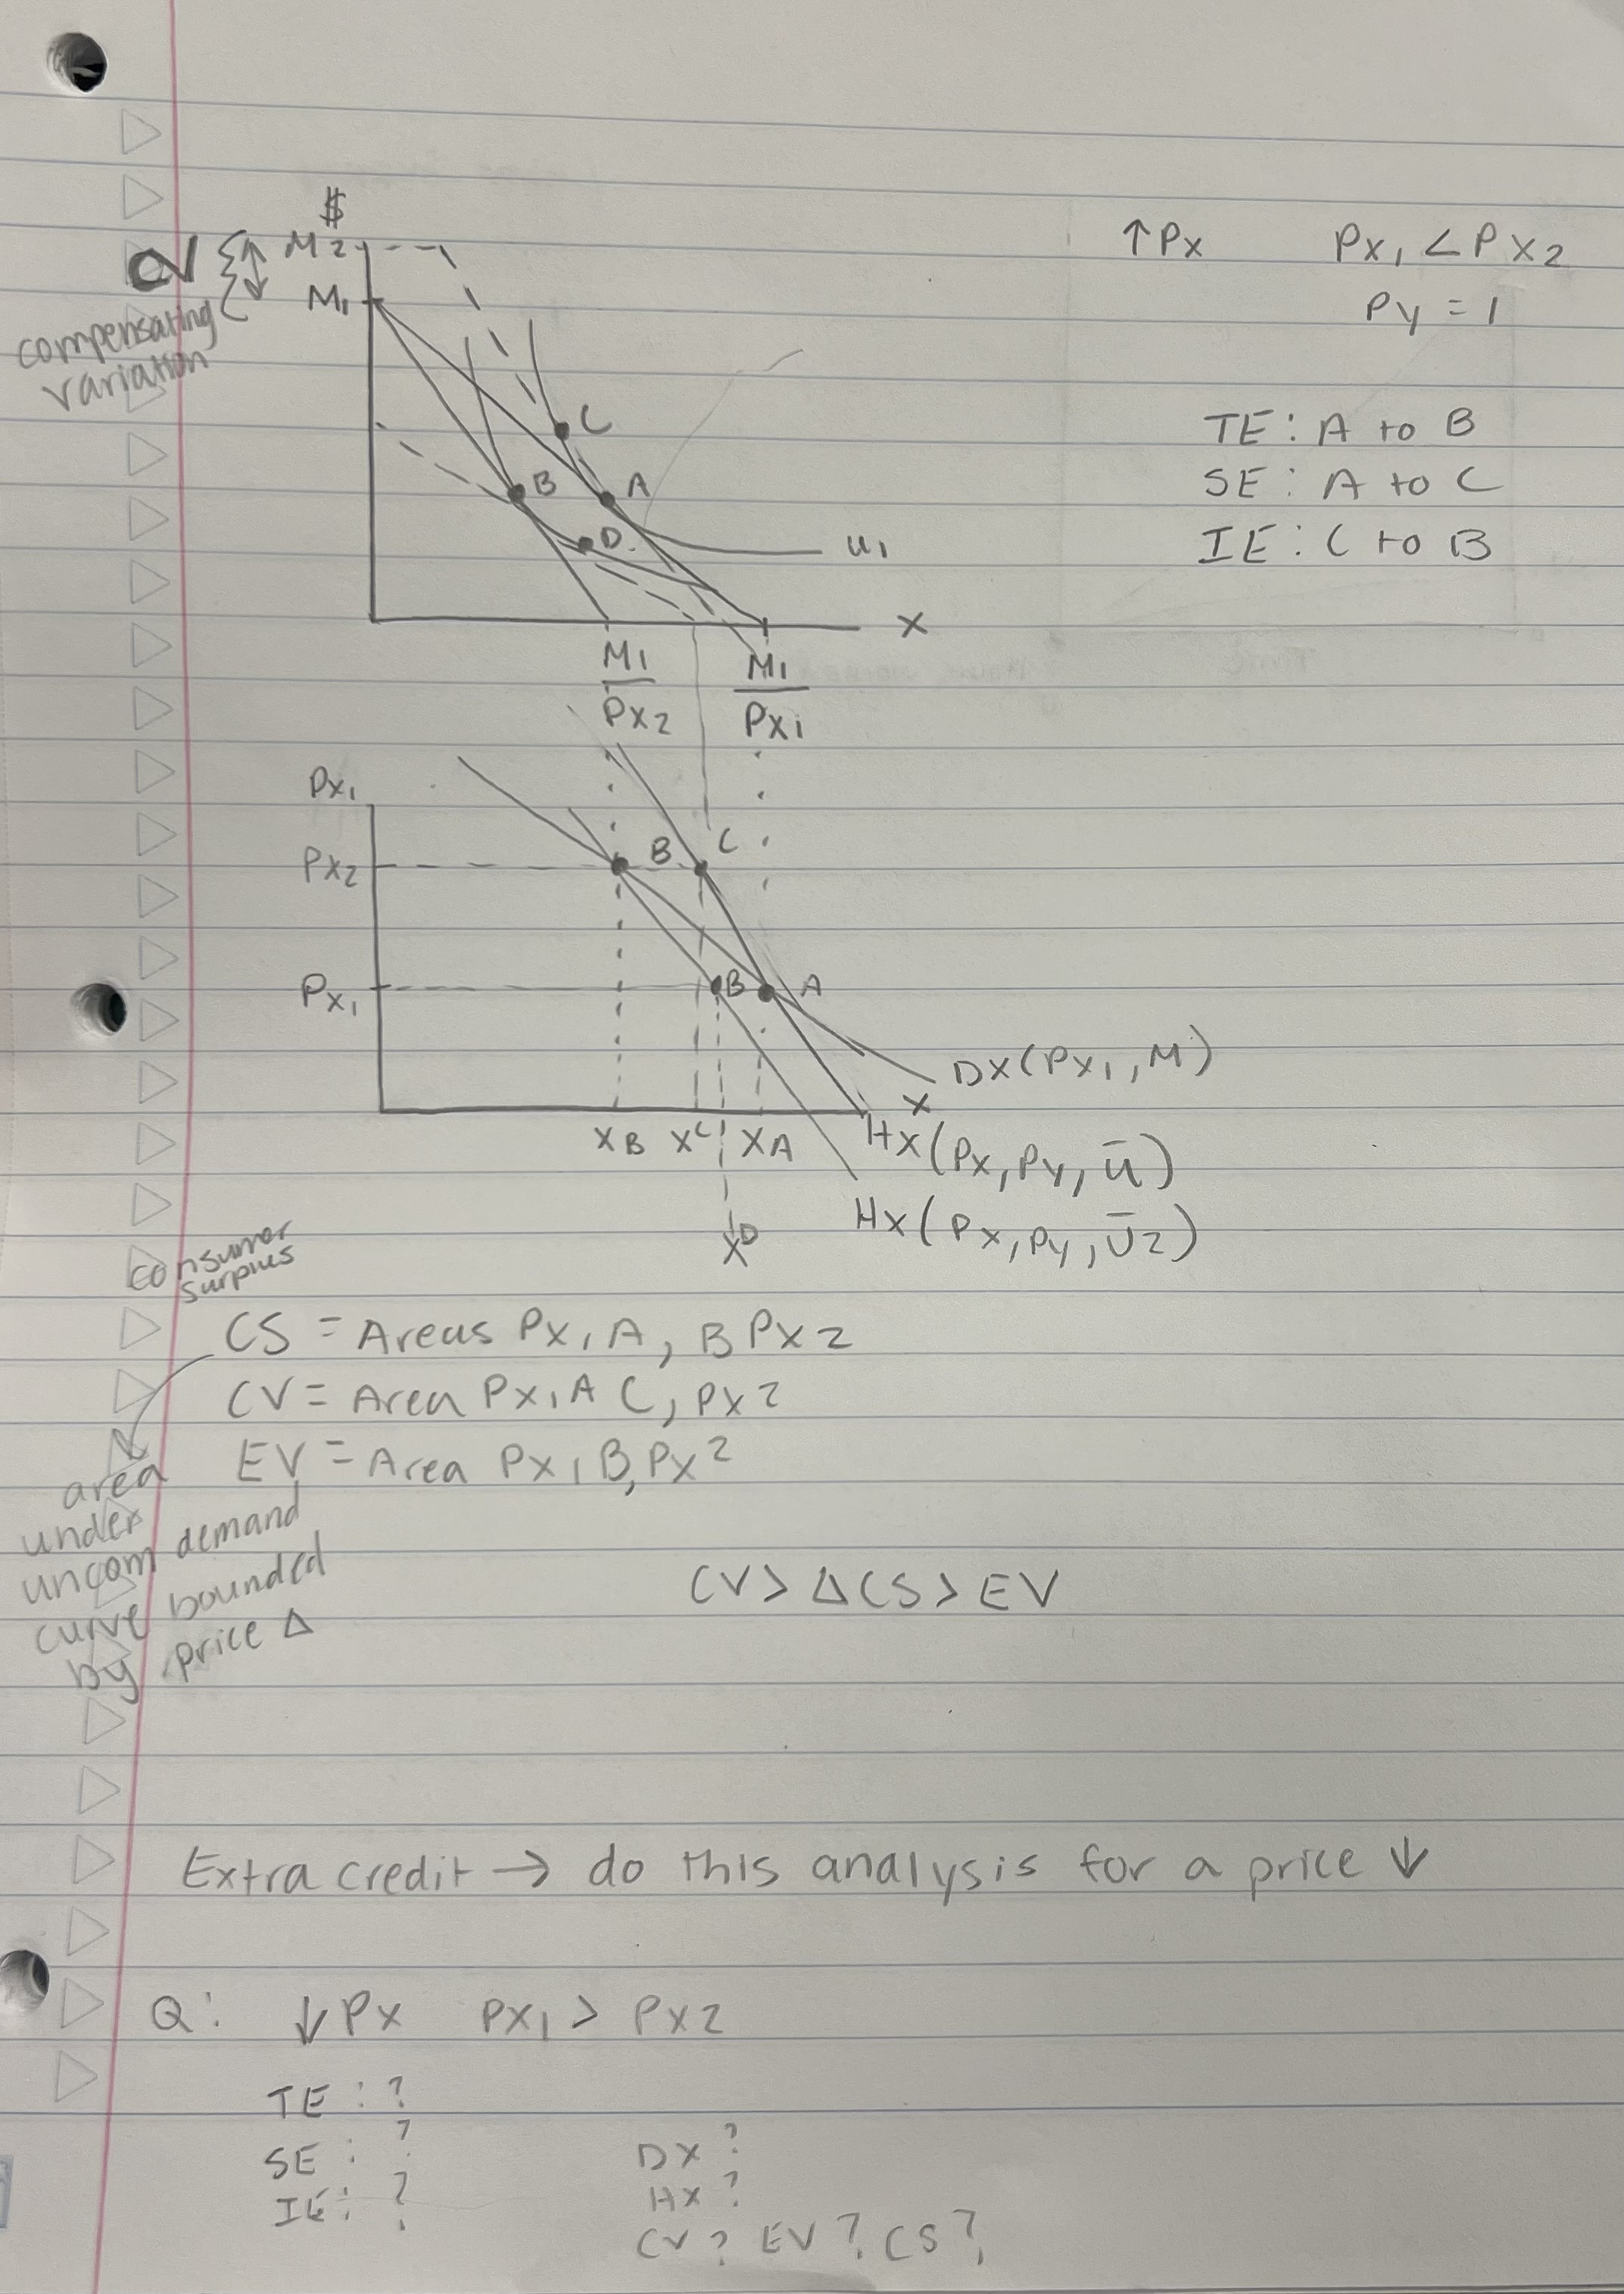 $
CV { M2
M1
compensating
variation
↑Px Px1 < Px2
Py = 1
C
B A
D
u1
X
TE: A to B
SE: A to C
IE: C to B
M1/Px2 M1/Px1
Px1
Px2 B C
Px1 B A
Dx(Px1, M)
X
XB XC XA Hx(Px, Py, ū)
XD Hx(Px, Py, Ū2)
consumer
surplus
CS = Areas Px1 A, B Px2
CV = Area Px1 A C, Px2
EV = Area Px1 B, Px2
area
under
uncom demand
curve bounded
by price Δ
CV > ΔCS > EV
Extra credit → do this analysis for a price ↓
Q: ↓Px Px1 > Px2
TE: ?
SE: ? Dx ?
IE: ? Hx ?
CV? EV? CS?